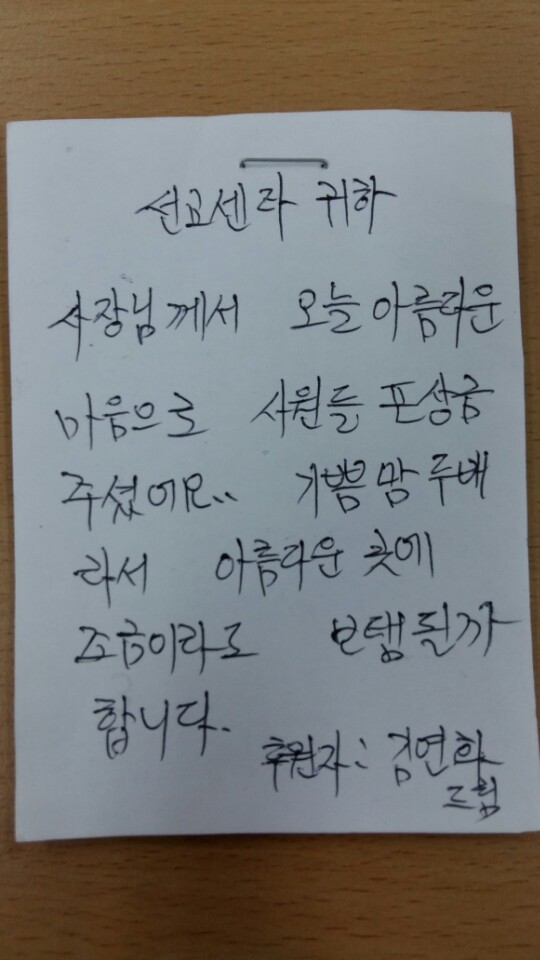 선교센타 귀하
사장님께서 오늘 아름다운
마음으로 사원들 포상금
주셨어요.. 기쁨맘 두배
라서 아름다운 곳에
조금이라도 보탬될까
합니다.
후원자: 김연화
드림